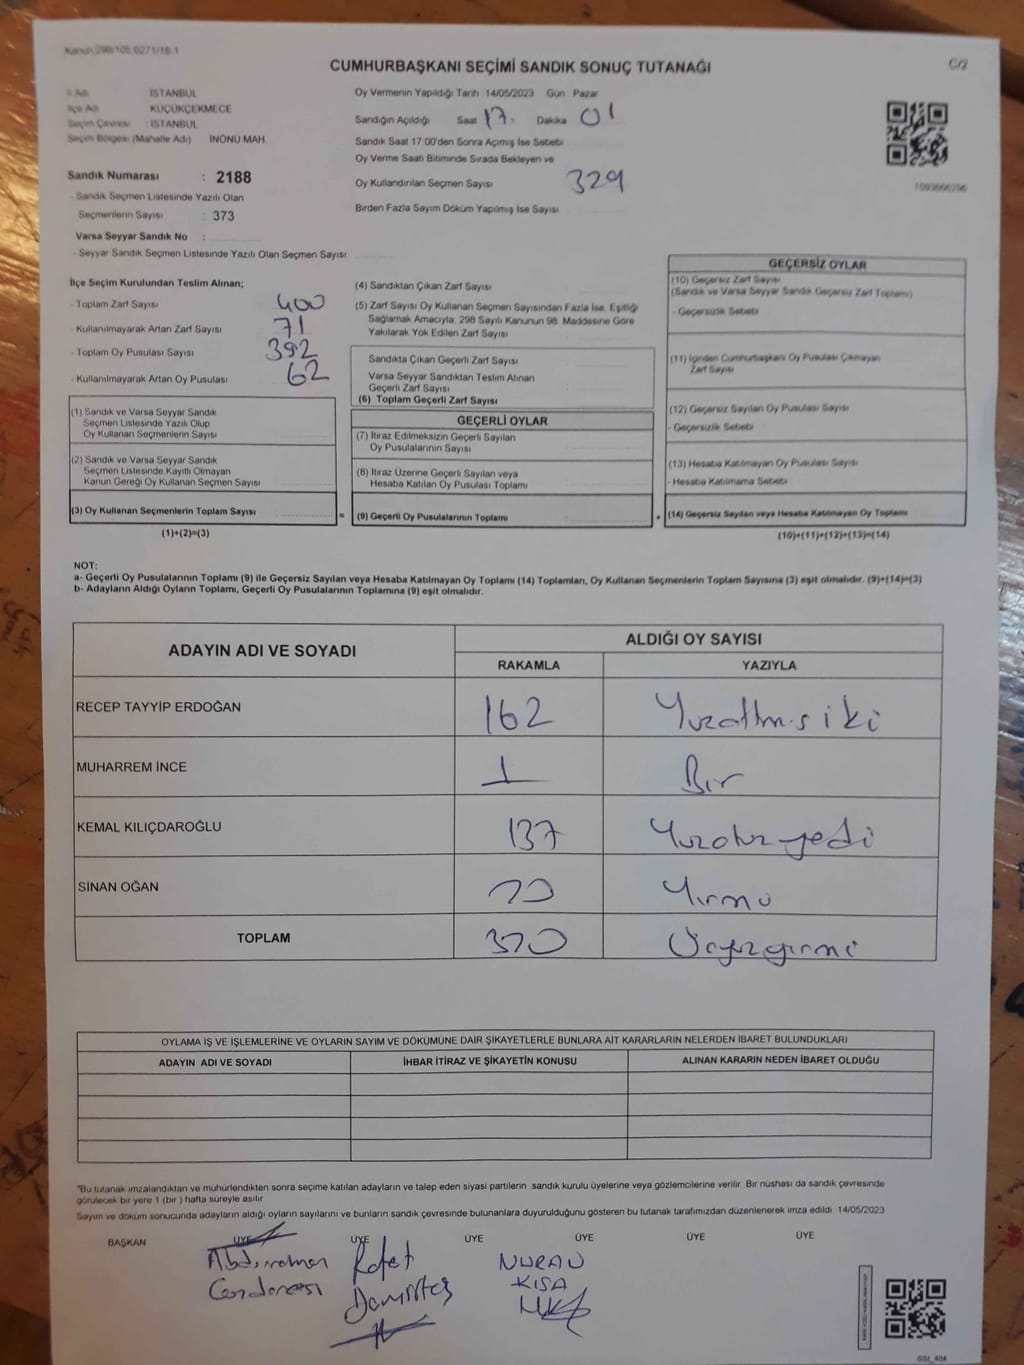 Kanun:298/105,6271/18-1
C/2
CUMHURBAŞKANI SEÇİMİ SANDIK SONUÇ TUTANAĞI
İl Adı : İSTANBUL
İlçe Adı : KÜÇÜKÇEKMECE
Seçim Çevresi : İSTANBUL
Seçim Bölgesi (Mahalle Adı) İNÖNÜ MAH.
Sandık Numarası : 2188
- Sandık Seçmen Listesinde Yazılı Olan
Seçmenlerin Sayısı : 373
Varsa Seyyar Sandık No :
- Seyyar Sandık Seçmen Listesinde Yazılı Olan Seçmen Sayısı:
Oy Vermenin Yapıldığı Tarih 14/05/2023 Gün : Pazar
Sandığın Açıldığı Saat 17: Dakika 01
Sandık Saat 17.00'den Sonra Açımış İse Sebebi
Oy Verme Saati Bitiminde Sırada Bekleyen ve
Oy Kullandırılan Seçmen Sayısı 329
Birden Fazla Sayım Döküm Yapılmış İse Sayısı
1093666296
İlçe Seçim Kurulundan Teslim Alınan;
- Toplam Zarf Sayısı 400
- Kullanılmayarak Artan Zarf Sayısı 71
- Toplam Oy Pusulası Sayısı 392
- Kullanılmayarak Artan Oy Pusulası 62
(1) Sandık ve Varsa Seyyar Sandık
Seçmen Listesinde Yazılı Olup
Oy Kullanan Seçmenlerin Sayısı
(2) Sandık ve Varsa Seyyar Sandık
Seçmen Listesinde Kayıtlı Olmayan
Kanun Gereği Oy Kullanan Seçmen Sayısı
(3) Oy Kullanan Seçmenlerin Toplam Sayısı
(1)+(2)=(3)
(4) Sandıktan Çıkan Zarf Sayısı
(5) Zarf Sayısı Oy Kullanan Seçmen Sayısından Fazla İse, Eşitliği
Sağlamak Amacıyla, 298 Sayılı Kanunun 98. Maddesine Göre
Yakılarak Yok Edilen Zarf Sayısı
Sandıkta Çıkan Geçerli Zarf Sayısı
Varsa Seyyar Sandıktan Teslim Alınan
Geçerli Zarf Sayısı
(6) Toplam Geçerli Zarf Sayısı
GEÇERLİ OYLAR
(7) İtiraz Edilmeksizin Geçerli Sayılan
Oy Pusulalarının Sayısı
(8) İtiraz Üzerine Geçerli Sayılan veya
Hesaba Katılan Oy Pusulası Toplamı
= (9) Geçerli Oy Pusulalarının Toplamı
GEÇERSİZ OYLAR
(10) Geçersiz Zarf Sayısı
(Sandık ve Varsa Seyyar Sandık Geçersiz Zarf Toplamı)
- Geçersizlik Sebebi
(11) İçinden Cumhurbaşkanı Oy Pusulası Çıkmayan
Zarf Sayısı
(12) Geçersiz Sayılan Oy Pusulası Sayısı
- Geçersizlik Sebebi
(13) Hesaba Katılmayan Oy Pusulası Sayısı
- Hesaba Katılmama Sebebi
+ (14) Geçersiz Sayılan veya Hesaba Katılmayan Oy Toplamı
(10)+(11)+(12)+(13)=(14)
NOT:
a- Geçerli Oy Pusulalarının Toplamı (9) ile Geçersiz Sayılan veya Hesaba Katılmayan Oy Toplamı (14) Toplamları, Oy Kullanan Seçmenlerin Toplam Sayısına (3) eşit olmalıdır. (9)+(14)=(3)
b- Adayların Aldığı Oyların Toplamı, Geçerli Oy Pusulalarının Toplamına (9) eşit olmalıdır.
ADAYIN ADI VE SOYADI ALDIĞI OY SAYISI
RAKAMLA YAZIYLA
RECEP TAYYİP ERDOĞAN 162 Yüzaltmışiki
MUHARREM İNCE 1 Bir
KEMAL KILIÇDAROĞLU 137 Yüzotuzyedi
SİNAN OĞAN 20 Yirmi
TOPLAM 320 Üçyüzyirmi
OYLAMA İŞ VE İŞLEMLERİNE VE OYLARIN SAYIM VE DÖKÜMÜNE DAİR ŞİKAYETLERLE BUNLARA AİT KARARLARIN NELERDEN İBARET BULUNDUKLARI
ADAYIN ADI VE SOYADI İHBAR İTİRAZ VE ŞİKAYETİN KONUSU ALINAN KARARIN NEDEN İBARET OLDUĞU
*Bu tutanak imzalandıktan ve mühürlendikten sonra seçime katılan adayların ve talep eden siyasi partilerin sandık kurulu üyelerine veya gözlemcilerine verilir. Bir nüshası da sandık çevresinde
görülecek bir yere 1 (bir ) hafta süreyle asılır.
Sayım ve döküm sonucunda adayların aldığı oyların sayılarını ve bunların sandık çevresinde bulunanlara duyurulduğunu gösteren bu tutanak tarafımızdan düzenlenerek imza edildi. 14/05/2023
BAŞKAN ÜYE ÜYE ÜYE ÜYE ÜYE ÜYE
Abdurrahman
Rafet
Demirtaş
NURAN
KISA